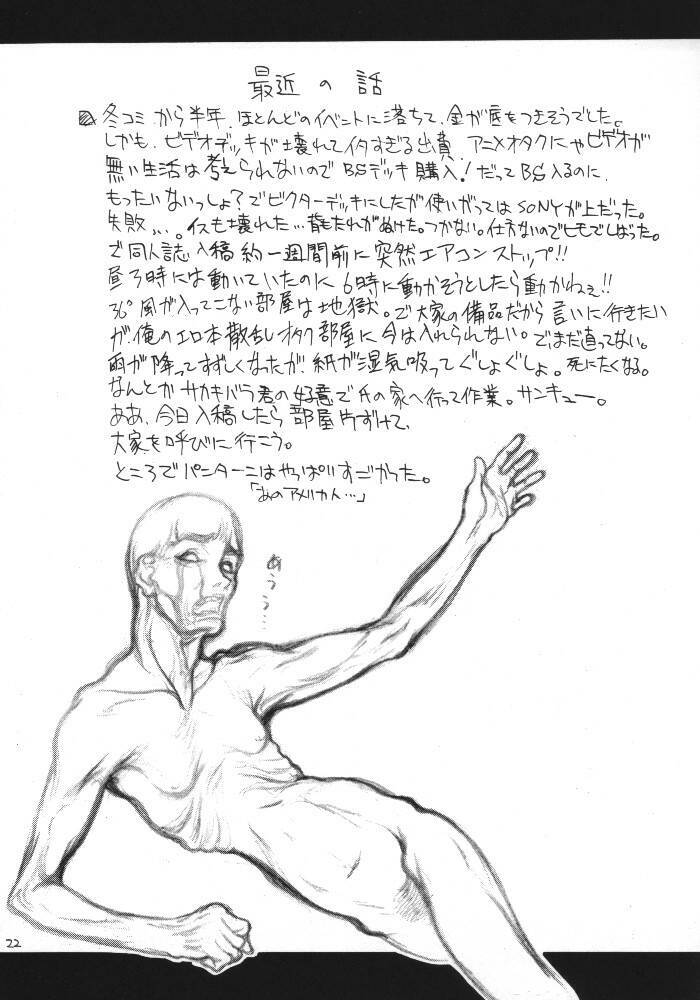 最近の話
冬コミから半年、ほとんどのイベントに落ちて、金が底もつきそうでした。
しかも、ビデオデッキが壊れてイタすぎる出費。アニメオタクにゃビデオが
無い生活は考えられないのでBSデッキ購入!だってBS入るのに、
もったいないっしょ?でビクターデッキにしたが使いがってはSONYが上だった。
失敗、、、。イスも壊れた…背もたれがぬけた。つかない。仕方ないのでヒモでしばった。
で同人誌入稿約一週間前に突然エアコンストップ!!
昼3時には動いていたのに6時に動かそうとしたら動かねぇ!!
36°風が入ってこない部屋は地獄。で大家の備品だから言いに行きたい
が、俺のエロ本散乱オタク部屋に今は入れられない。でまだ直ってない。
雨が降ってすずしくなったが、紙が湿気吸ってぐしょぐしょ。死にたくなる。
なんとかサカキバラ君の好意で氏の家へ行って作業。サンキュー。
ああ、今日入稿したら部屋片ずけて、
大家を呼びに行こう。
ところでパンターニはやっぱりすごかった。
「あのアメリカん…」
あうう…
22